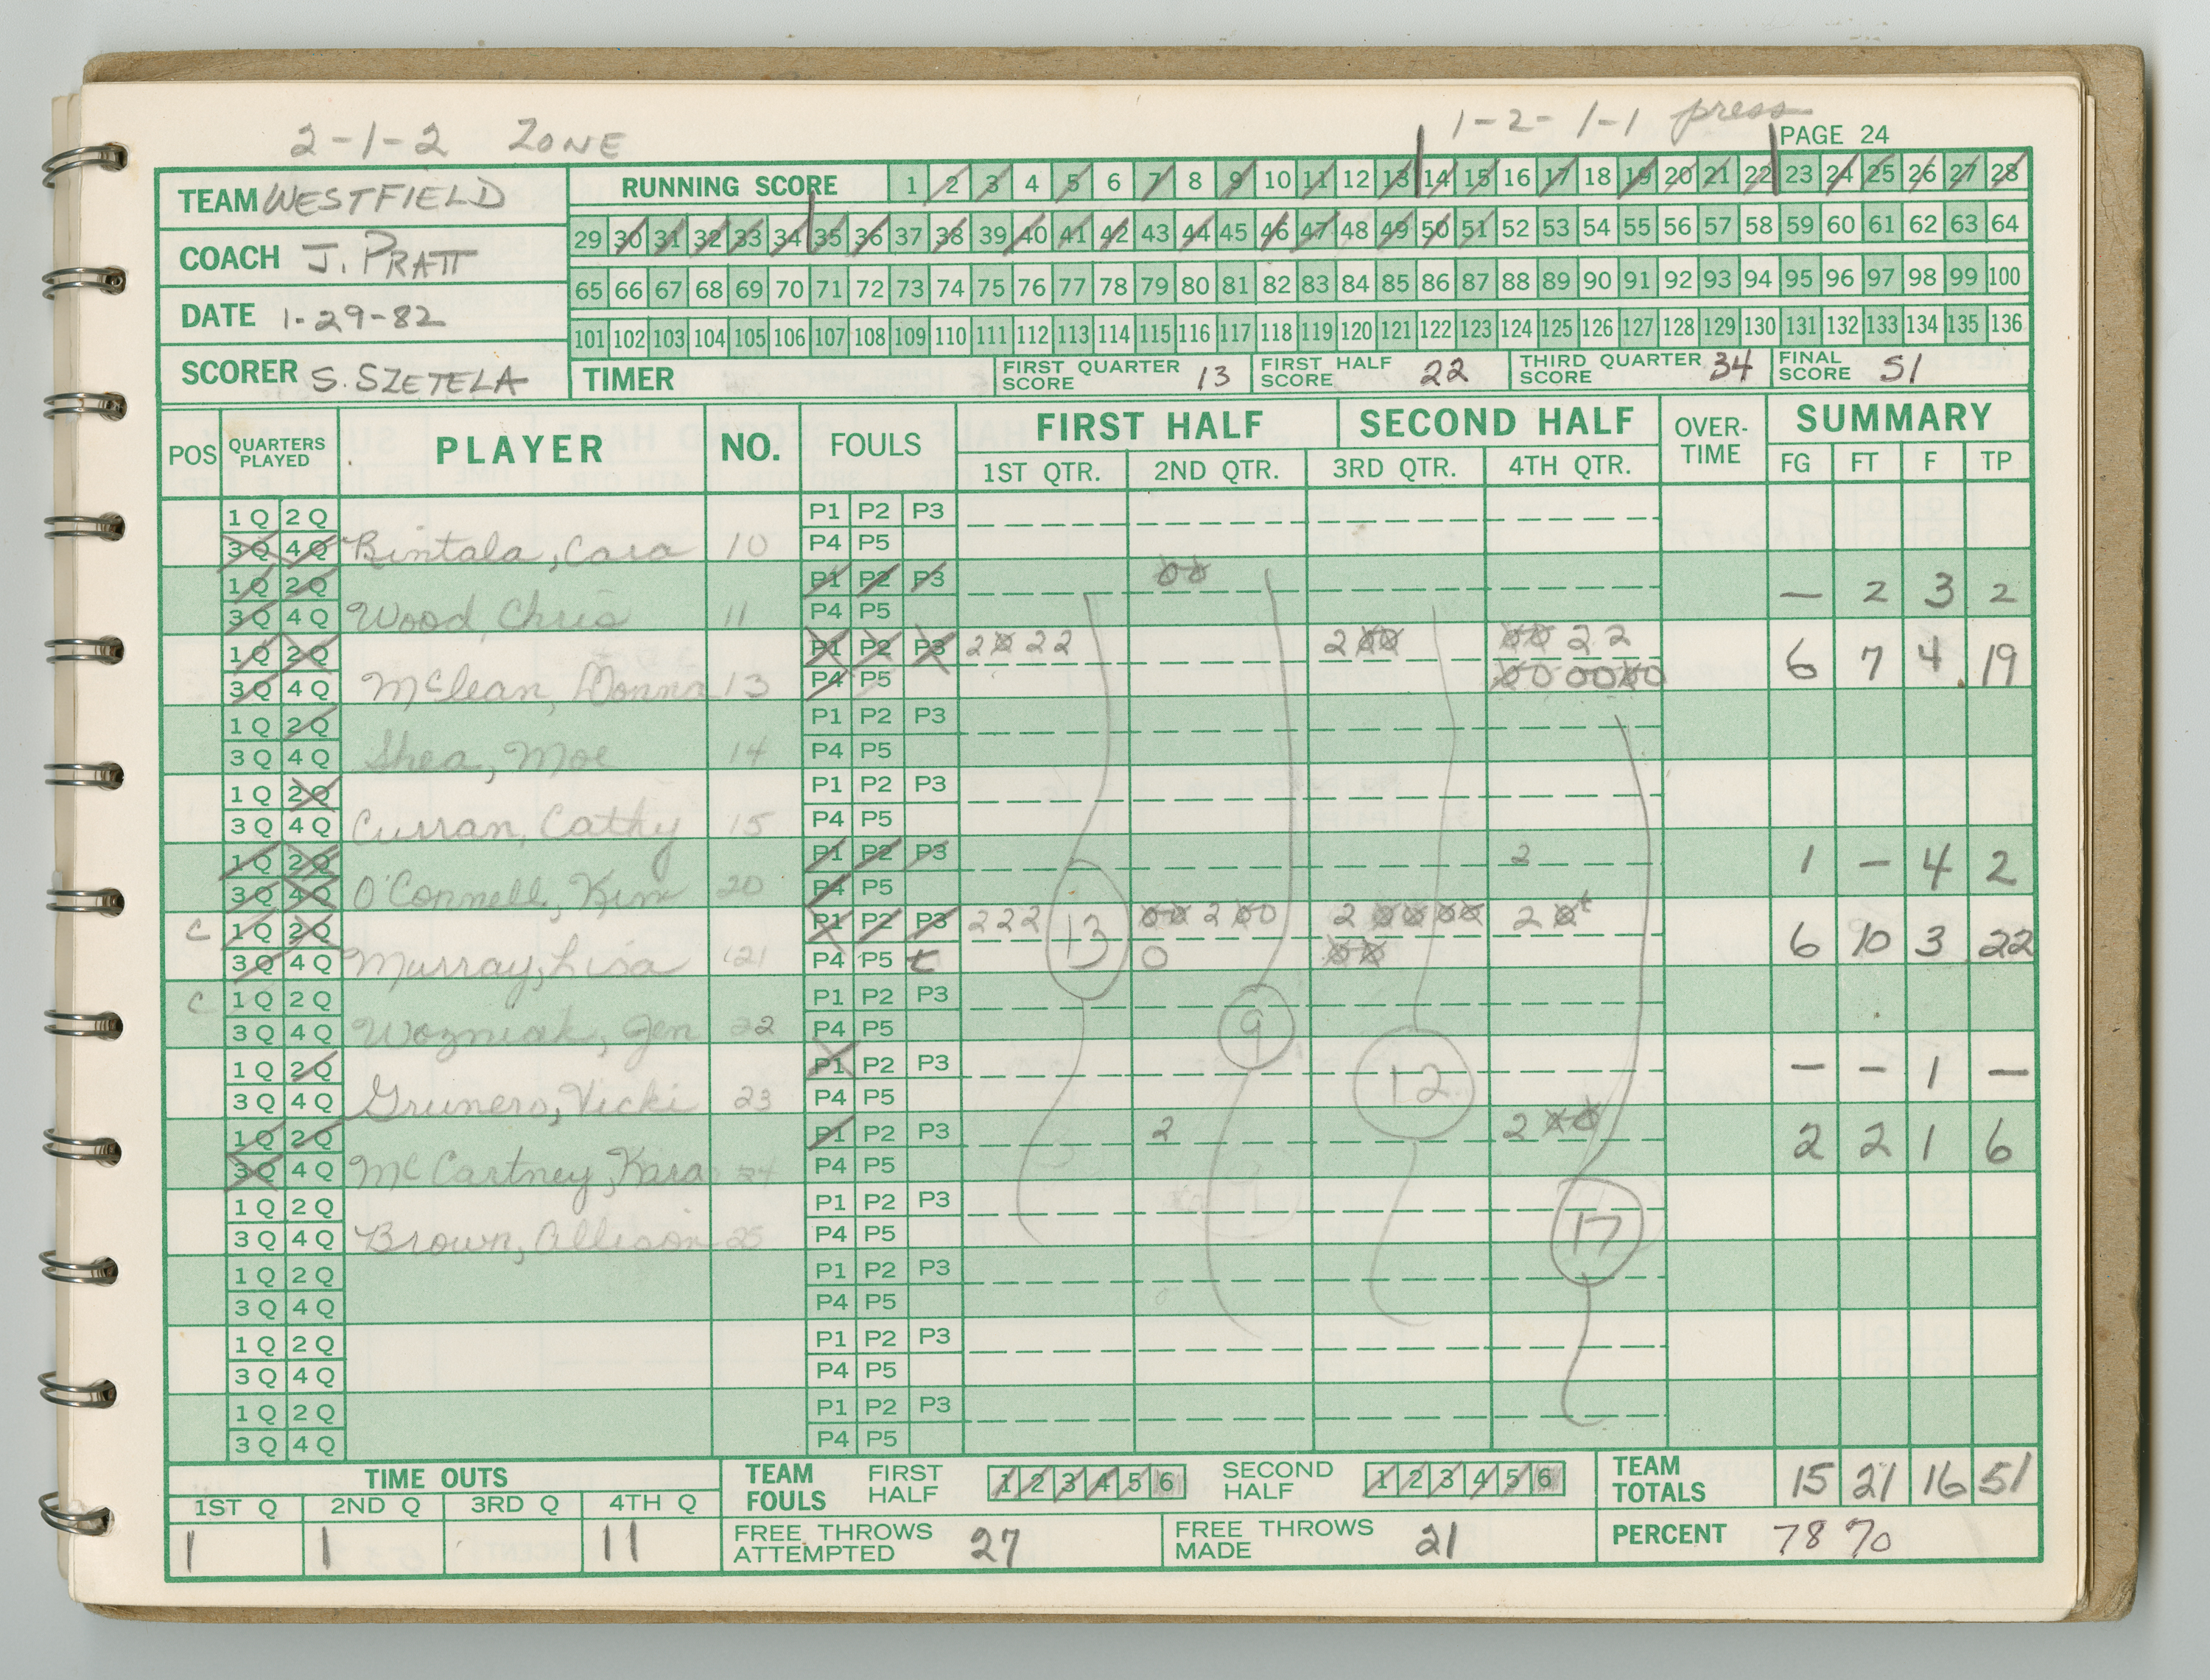 2-1-2 ZONE
1-2-1-1 press
PAGE 24
TEAM WESTFIELD
COACH J. PRATT
DATE 1-29-82
SCORER S. SZETELA
RUNNING SCORE 1 2 3 4 5 6 7 8 9 10 11 12 13 14 15 16 17 18 19 20 21 22 23 24 25 26 27 28
29 30 31 32 33 34 35 36 37 38 39 40 41 42 43 44 45 46 47 48 49 50 51 52 53 54 55 56 57 58 59 60 61 62 63 64
65 66 67 68 69 70 71 72 73 74 75 76 77 78 79 80 81 82 83 84 85 86 87 88 89 90 91 92 93 94 95 96 97 98 99 100
101 102 103 104 105 106 107 108 109 110 111 112 113 114 115 116 117 118 119 120 121 122 123 124 125 126 127 128 129 130 131 132 133 134 135 136
TIMER FIRST QUARTER SCORE 13 FIRST HALF SCORE 22 THIRD QUARTER SCORE 34 FINAL SCORE 51
POS QUARTERS PLAYED PLAYER NO. FOULS FIRST HALF SECOND HALF OVER-TIME SUMMARY
1ST QTR. 2ND QTR. 3RD QTR. 4TH QTR. FG FT F TP
1Q 2Q P1 P2 P3
3Q 4Q Bintala, Cara 10 P4 P5
1Q 2Q P1 P2 P3 00 — 2 3 2
3Q 4Q Wood, Chris 11 P4 P5
1Q 2Q P1 P2 P3 2 0 2 2 2 00 00 2 2 6 7 4 19
3Q 4Q McLean, Donna 13 P4 P5 00 00 00
1Q 2Q P1 P2 P3
3Q 4Q Shea, Moe 14 P4 P5
1Q 2Q P1 P2 P3
3Q 4Q Curran, Cathy 15 P4 P5
1Q 2Q P1 P2 P3 2 1 — 4 2
3Q 4Q O'Connell, Kim 20 P4 P5
C 1Q 2Q P1 P2 P3 2 2 2 00 2 00 2 00 00 2 0t 6 10 3 22
3Q 4Q Murray, Lisa 21 P4 P5 t 13 0 00
C 1Q 2Q P1 P2 P3
3Q 4Q Wozniak, Jen 22 P4 P5 9
1Q 2Q P1 P2 P3 12 — — 1 —
3Q 4Q Grunero, Vicki 23 P4 P5
1Q 2Q P1 P2 P3 2 2 00 2 2 1 6
3Q 4Q McCartney, Kara 24 P4 P5
1Q 2Q P1 P2 P3
3Q 4Q Brown, Allison 25 P4 P5 17
1Q 2Q P1 P2 P3
3Q 4Q P4 P5
1Q 2Q P1 P2 P3
3Q 4Q P4 P5
1Q 2Q P1 P2 P3
3Q 4Q P4 P5
TIME OUTS
1ST Q 2ND Q 3RD Q 4TH Q
1 1 11
TEAM FOULS FIRST HALF 1 2 3 4 5 6 SECOND HALF 1 2 3 4 5 6
FREE THROWS ATTEMPTED 27 FREE THROWS MADE 21
TEAM TOTALS 15 21 16 51
PERCENT 78 %